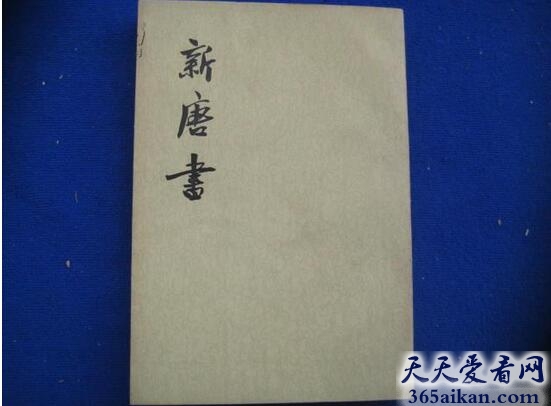 新唐書
天天爱看网
365aikan.com